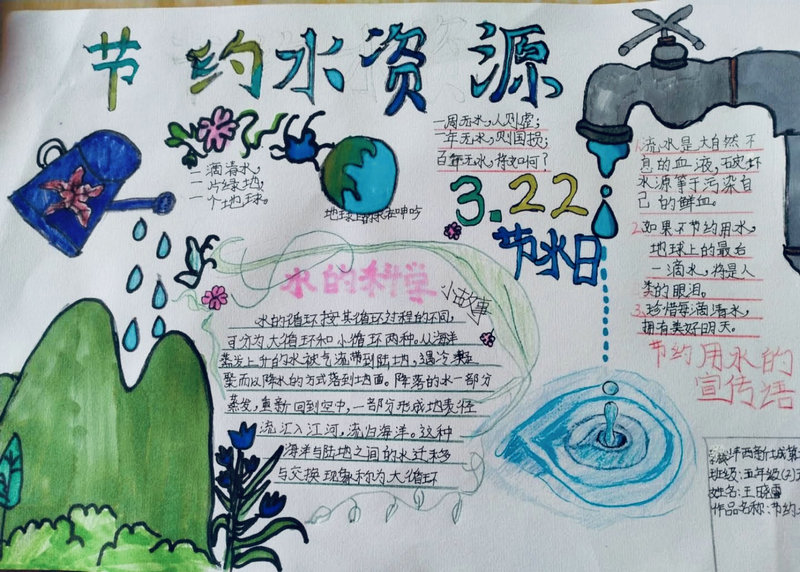 节约水资源
一滴清水,
一片绿地,
一个地球。
地球上的水在呻吟
一周无水,人则虚;
一年无水,则国损;
百年无水,将如何?
3.22
节水日
水的科学
小故事
水的循环按其循环过程的不同,
可分为大循环和小循环两种。从海洋
蒸发上升的水被气流带到陆地,遇冷凝
聚而以降水的方式落到地面。降落的水一部分
蒸发,重新回到空中,一部分形成地表径
流汇入江河,流归海洋。这种
海洋与陆地之间的水迁移
与交换现象称为大循环
1.流水是大自然不
息的血液,破坏
水源等于污染自
己的鲜血。
2.如果不节约用水,
地球上的最后
一滴水,将是人
类的眼泪。
3.珍惜每滴清水,
拥有美好明天。
节约用水的
宣传语
班级:五年级(2)
姓名:王晓雷
作品名称:节约